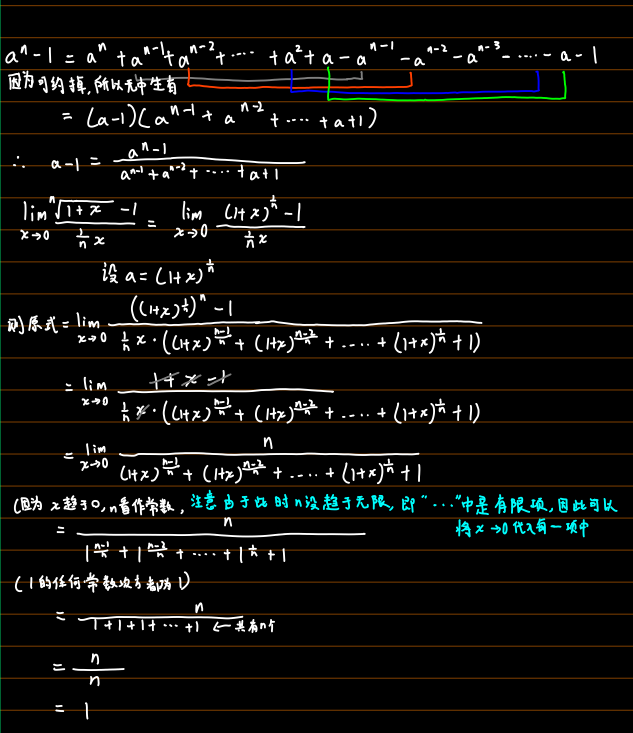 aⁿ-1 = aⁿ + aⁿ⁻¹ + aⁿ⁻² + ····· + a² + a - aⁿ⁻¹ - aⁿ⁻² - aⁿ⁻³ - ····· - a - 1
因为可约掉,所以无中生有
= (a-1)(aⁿ⁻¹ + aⁿ⁻² + ···· + a+1)
∴ a-1 = (aⁿ-1)/(aⁿ⁻¹+aⁿ⁻²+ ···· +a+1)
lim x→0 (ⁿ√(1+x) -1)/(1/n x) = lim x→0 ((1+x)^(1/n) -1)/(1/n x)
设 a = (1+x)^(1/n)
则原式 = lim x→0 (((1+x)^(1/n))ⁿ -1)/(1/n x·((1+x)^((n-1)/n) + (1+x)^((n-2)/n) + ····· + (1+x)^(1/n) + 1))
= lim x→0 (1+x-1)/(1/n x·((1+x)^((n-1)/n) + (1+x)^((n-2)/n) + ····· + (1+x)^(1/n) + 1))
= lim x→0 n/((1+x)^((n-1)/n) + (1+x)^((n-2)/n) + ····· + (1+x)^(1/n) + 1)
(因为 x趋于0,n看作常数, 注意由于此时n没趋于无限,即"···"中是有限项,因此可以
将x→0代入每一项中
= n/(1^((n-1)/n) + 1^((n-2)/n) + ····· + 1^(1/n) + 1)
(1的任何常数次方都为1)
= n/(1+1+1+ ··· +1) ← 共有n个
= n/n
= 1